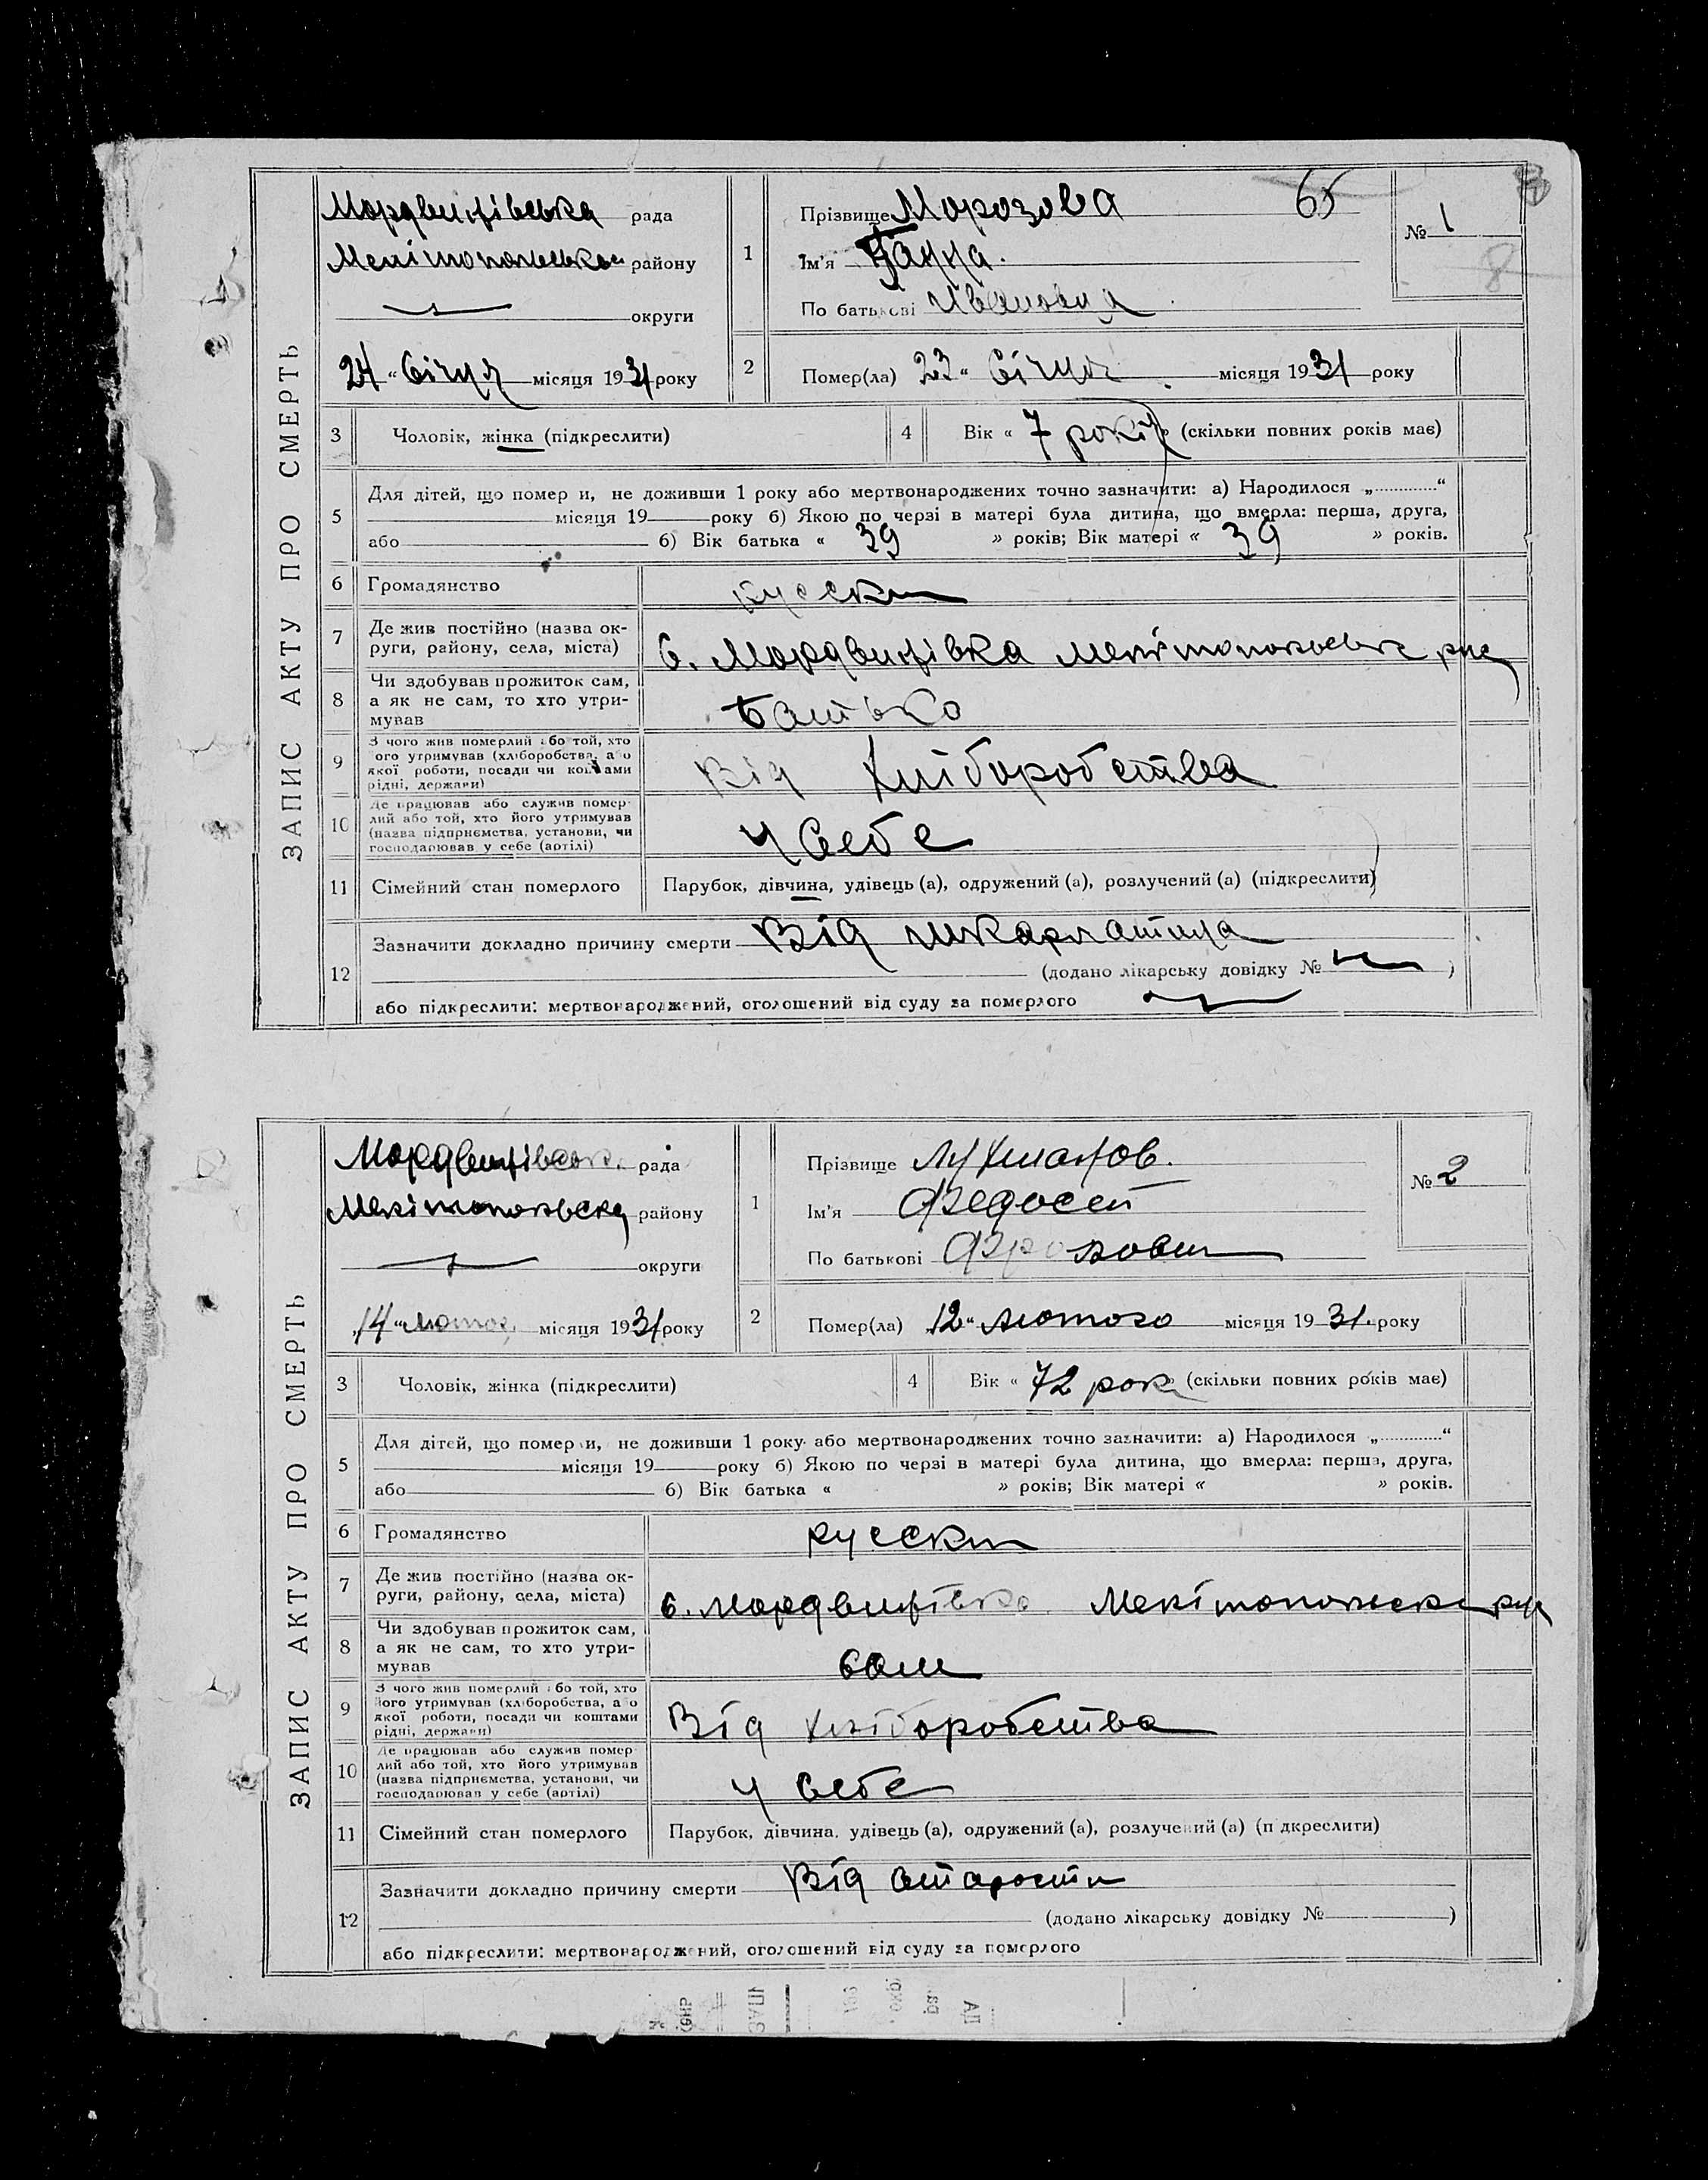 ЗАПИС АКТУ ПРО СМЕРТЬ
Мордвинівська рада
Мелітопольськ району
округи
24 « Січня місяця 1931 року
1
Прізвище Морозова
65
Ім'я Ганна.
По батькові Ивановна
№ 1
8
2
Помер(ла) 23 « Січня місяця 1931 року
3
Чоловік, жінка (підкреслити)
4
Вік « 7 років » (скільки повних років має)
5
Для дітей, що помер и, не доживши 1 року або мертвонароджених точно зазначити: а) Народилося „ “
місяця 19 року б) Якою по черзі в матері була дитина, що вмерла: перша, друга,
або 6) Вік батька « 39 » років; Вік матері « 39 » років.
6
Громадянство
русски
7
Де жив постійно (назва ок-
руги, району, села, міста)
с. Мордвинівка Мелітопольськ
8
Чи здобував прожиток сам,
а як не сам, то хто утри-
мував
Батько
9
З чого жив померлий або той, хто
його утримував (хліборобства, або
якої роботи, посади чи коштами
рідні, держави)
Від хліборобства
10
Де працював або служив помер-
лий або той, хто його утримував
(назва підприємства, установи, чи
господарював у себе (артілі)
у себе
11
Сімейний стан померлого
Парубок, дівчина, удівець (а), одружений (а), розлучений (а) (підкреслити)
12
Зазначити докладно причину смерти Від шкарлатина
(додано лікарську довідку № )
або підкреслити: мертвонароджений, оголошений від суду за померлого
ЗАПИС АКТУ ПРО СМЕРТЬ
Мордвинівськ. рада
Мелітопольськ району
округи
„14 “ лютог місяця 1931 року
1
Прізвище Лукманов.
Ім'я Федосей
По батькові Фролович
№ 2
2
Помер(ла) „12 “ лютого місяця 1931. року
3
Чоловік, жінка (підкреслити)
4
Вік « 72 рок » (скільки повних років має)
5
Для дітей, що помер и, не доживши 1 року або мертвонароджених точно зазначити: а) Народилося „ “
місяця 19 року б) Якою по черзі в матері була дитина, що вмерла: перша, друга,
або 6) Вік батька « » років; Вік матері « » років.
6
Громадянство
русски
7
Де жив постійно (назва ок-
руги, району, села, міста)
с. Мордвинівка Мелітопольськ
8
Чи здобував прожиток сам,
а як не сам, то хто утри-
мував
сам
9
З чого жив померлий або той, хто
його утримував (хліборобства, або
якої роботи, посади чи коштами
рідні, держави)
Від хліборобства
10
Де працював або служив помер-
лий або той, хто його утримував
(назва підприємства, установи, чи
господарював у себе (артілі)
у себе
11
Сімейний стан померлого
Парубок, дівчина, удівець (а), одружений (а), розлучений (а) (підкреслити)
12
Зазначити докладно причину смерти Від старости
(додано лікарську довідку № )
або підкреслити: мертвонароджений, оголошений від суду за померлого